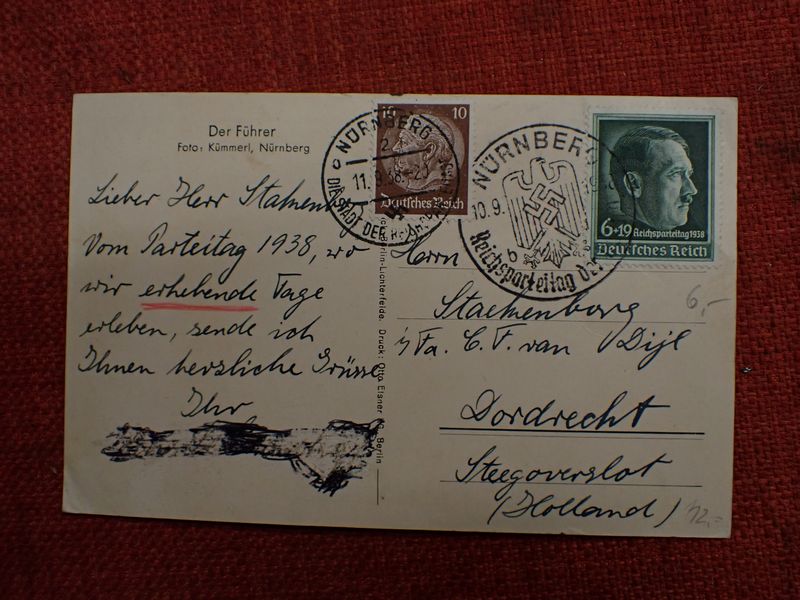 Der Führer
Foto: Kümmerl, Nürnberg
Lieber Herr Stakenborg
Vom Parteitag 1938, wo
wir erhebende Tage
erleben, sende ich
Ihnen herzliche Grüsse
Ihr
Berlin-Lichterfelde. Druck: Otto Elsner Berlin
NÜRNBERG
2
11.9.38.
DIE STADT DER
10
Deutsches Reich
NÜRNBERG
10.9.
b
Reichsparteitag
6+19 Reichsparteitag 1938
Deutsches Reich
Herrn
Stakenborg
i/Fa. C. F. van Dijl
Dordrecht
Steegoversloot
(Holland)
6,-
12.-